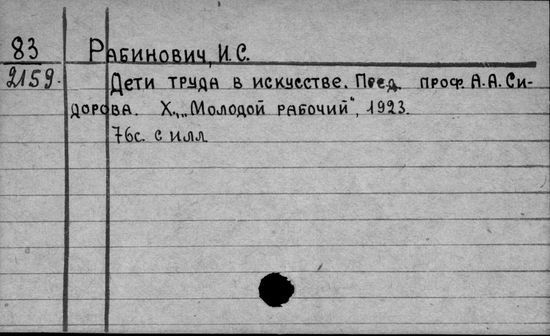 83
2159.
Рабинович, И.С.
Дети труда в искусстве. Пред. проф. А.А. Си-
дорова. Х., „Молодой рабочий", 1923.
76с. с илл